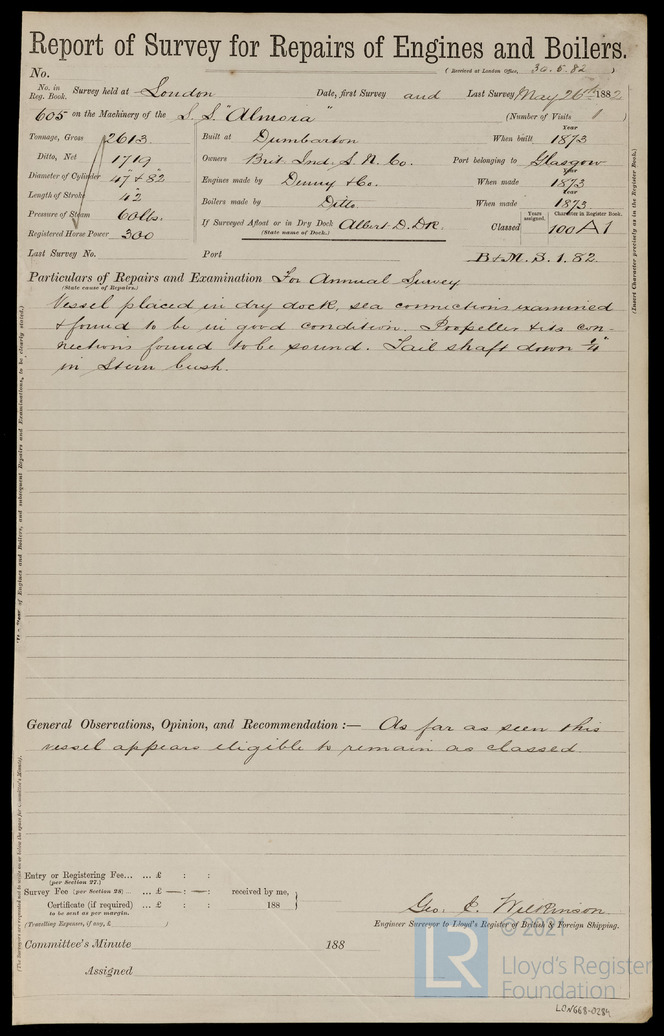 Report of Survey for Repairs of Engines and Boilers.
No. (Received at London Office, 30.5.82 )
No. in Reg. Book. Survey held at London Date, first Survey and Last Survey May 26th 1882
605 on the Machinery of the S. S. "Almora" (Number of Visits 1 )
Tonnage, Gross 2613 Built at Dumbarton When built Year 1873
Ditto, Net 1719 Owners Brit Ind. S. N. Co. Port belonging to Glasgow
Diameter of Cylinder 47" & 82" Engines made by Denny & Co. When made Year 1873
Length of Stroke 42" Boilers made by Ditto When made Year 1873
Pressure of Steam 60 lbs. If Surveyed Afloat or in Dry Dock Albert D. Dk. Classed Years assigned. Character in Register Book. 100 A1
(State name of Dock.)
Registered Horse Power 300
Last Survey No. Port B&M.S.1.82.
Particulars of Repairs and Examination For Annual Survey
(State cause of Repairs.)
Vessel placed in dry dock, sea connections examined
& found to be in good condition. Propeller & its con-
nections found to be sound. Tail shaft down 1/4"
in Stern bush.
General Observations, Opinion, and Recommendation :— As far as seen this
vessel appears eligible to remain as classed.
Entry or Registering Fee... ... £ : :
(per Section 27.)
Survey Fee (per Section 28) ... £ — : — : received by me,
Certificate (if required) ... £ : : 188
to be sent as per margin.
(Travelling Expenses, if any, £ )
Geo. E. Wilkinson
Engineer Surveyor to Lloyd's Register of British & Foreign Shipping.
Committee's Minute 188
Assigned
(Insert Character precisely as in the Register Book.)
of Engines and Boilers, and subsequent Repairs and Examinations, to be clearly stated.)
(The Surveyors are requested not to write on or below the space for Committee's Minute.)
© 2021
LR
Lloyd's Register
Foundation
LON668-0284